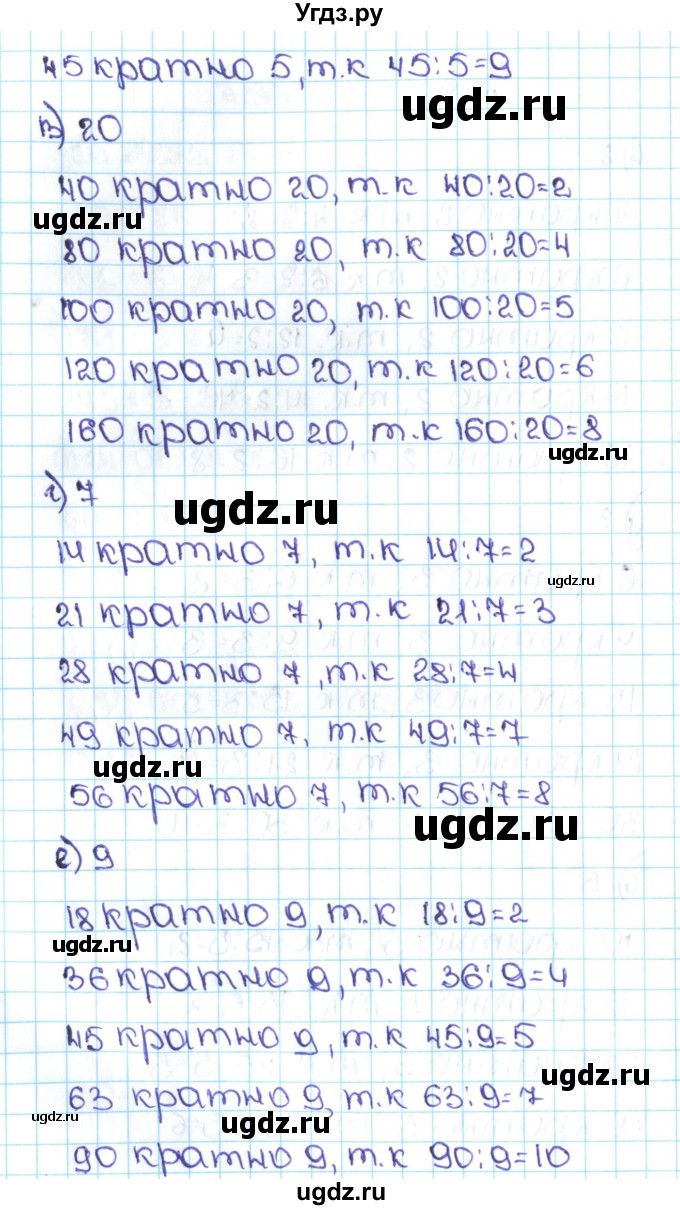 Угдз.ру
45 кратно 5, т.к 45:5=9
ugdz.ru
в) 20
40 кратно 20, т.к 40:20=2
ugdz.ru
80 кратно 20, т.к 80:20=4
100 кратно 20, т.к 100:20=5
120 кратно 20, т.к 120:20=6
160 кратно 20, т.к 160:20=8
ugdz.ru
г) 7
ugdz.ru
14 кратно 7, т.к 14:7=2
ugdz.ru
21 кратно 7, т.к 21:7=3
28 кратно 7, т.к 28:7=4
49 кратно 7, т.к 49:7=7
ugdz.ru
56 кратно 7, т.к 56:7=8
ugdz.ru
е) 9
18 кратно 9, т.к 18:9=2
ugdz.ru
36 кратно 9, т.к 36:9=4
45 кратно 9, т.к 45:9=5
ugdz.ru
63 кратно 9, т.к 63:9=7
ugdz.ru
ugdz.ru
90 кратно 9, т.к 90:9=10
ugdz.ru